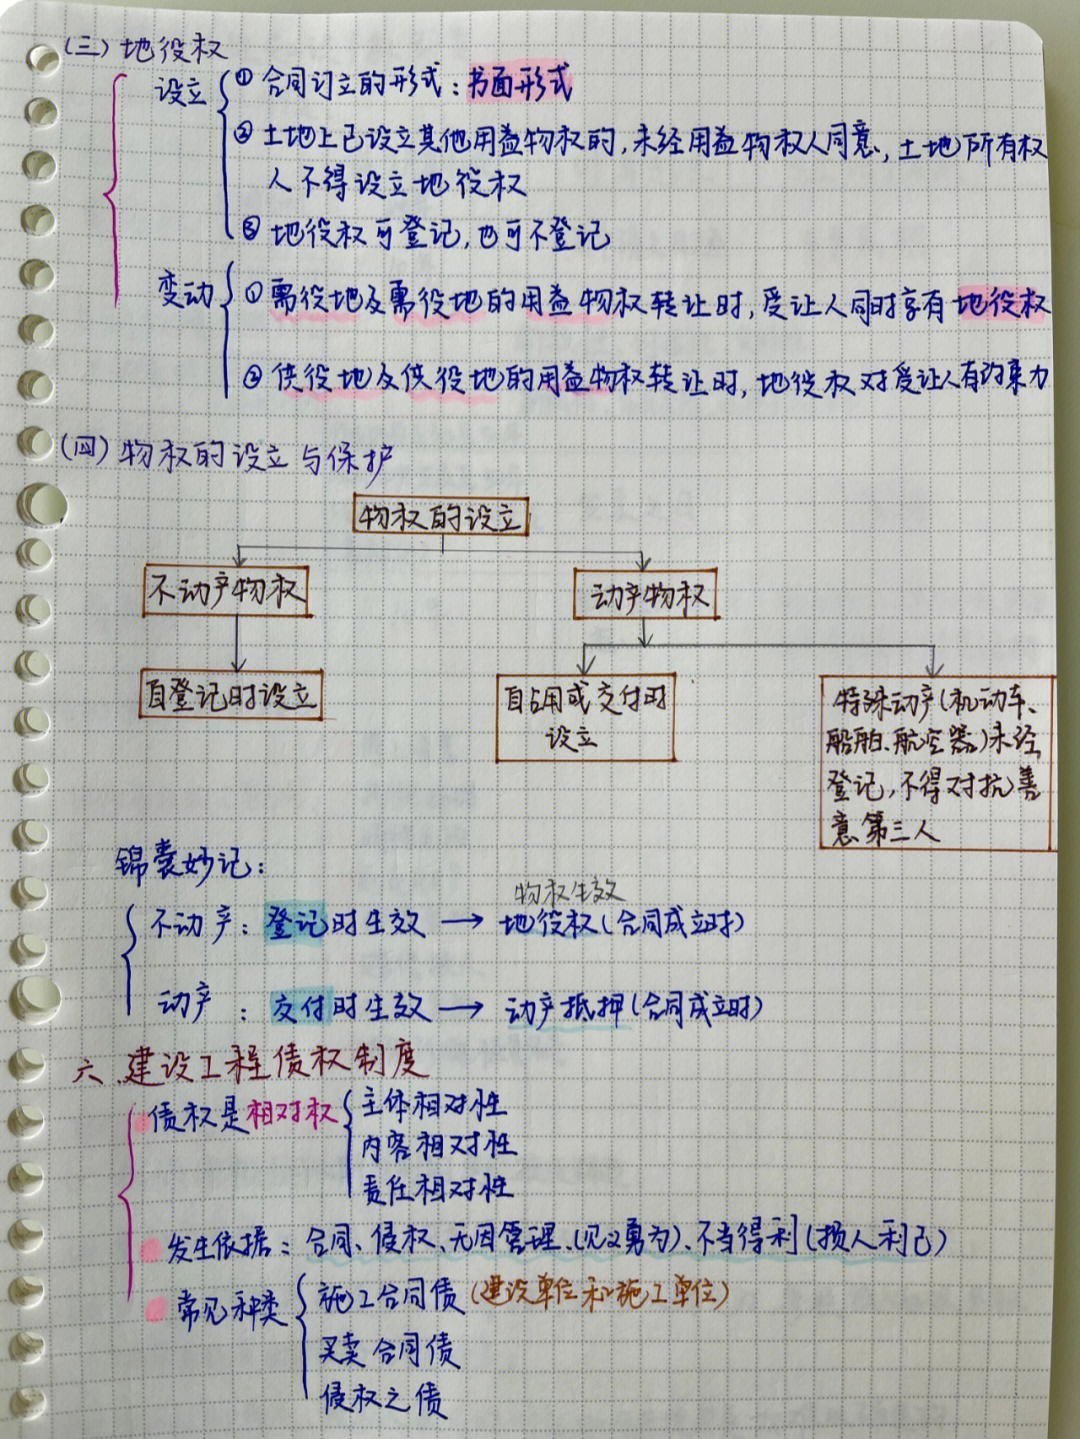 (三)地役权
设立
①合同订立的形式:书面形式
②土地上已设立其他用益物权的,未经用益物权人同意,土地所有权
人不得设立地役权
③地役权可登记,也可不登记
变动
①需役地及需役地的用益物权转让时,受让人同时享有地役权
②供役地及供役地的用益物权转让时,地役权对受让人有约束力
(四)物权的设立与保护
物权的设立
不动产物权
动产物权
自登记时设立
自占用或交付时
设立
特殊动产(机动车、
船舶、航空器)未经
登记,不得对抗善
意第三人
锦囊妙记:
物权生效
不动产:登记时生效→地役权(合同成立时)
动产:交付时生效→动产抵押(合同成立时)
六、建设工程债权制度
债权是相对权
主体相对性
内容相对性
责任相对性
发生依据:合同、侵权、无因管理、(见义勇为)、不当得利(损人利己)
常见种类
施工合同债(建设单位和施工单位)
买卖合同债
侵权之债